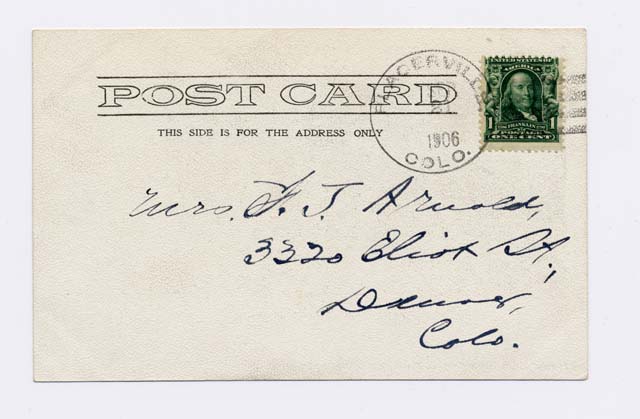 POST CARD
THIS SIDE IS FOR THE ADDRESS ONLY
PLACERVILLE
1906
COLO.
UNITED STATES OF
AMERICA
1 FRANKLIN 1
POSTAGE
ONE CENT
Mrs. F. J. Arnold,
3320 Eliot St.,
Denver,
Colo.